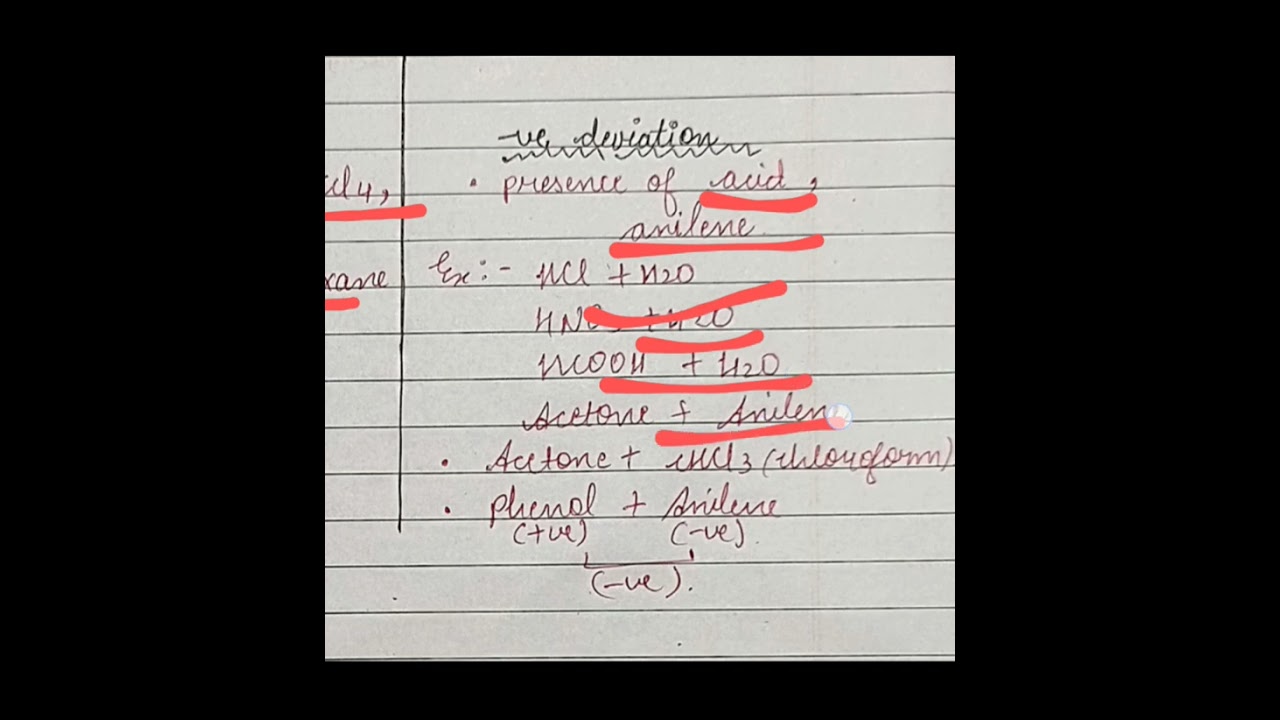 -ve deviation
cl4, • presence of acid,
anilene
xane Ex:- HCl + H2O
HNO3 + H2O
HCOOH + H2O
Acetone + Anilen
• Acetone + CHCl3 (chloroform)
• phenol + Anilene
(+ve) (-ve).
(-ve).